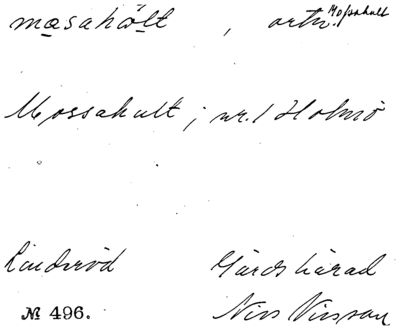 masahölt , ortn. Mossahult
Mossahult; nr. 1 Holmö
Linderöd Gärds härad
№ 496. Nils Nilsson